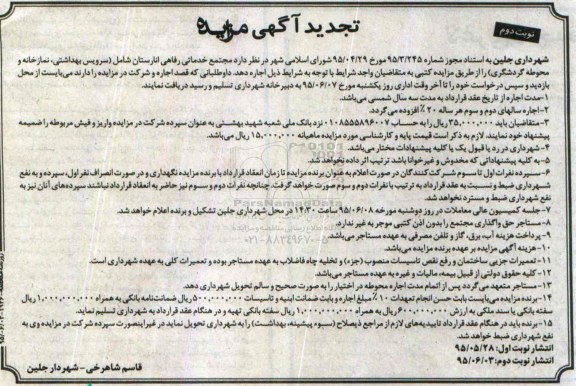 تجدید آگهی مزایده
نوبت دوم
شهرداری جلین به استناد مجوز شماره ۹۵/۳/۲۴۵ مورخ ۹۵/۰۴/۲۹ شورای اسلامی شهر در نظر دارد مجتمع خدماتی رفاهی انارستان شامل (سرویس بهداشتی، نمازخانه و
محوطه گردشگری) را از طریق مزایده کتبی به متقاضیان واجد شرایط با توجه به شرایط ذیل اجاره دهد. داوطلبانی که قصد اجاره و شرکت در مزایده را دارند می‌بایست از محل
بازدید و سپس درخواست خود را تا آخر وقت اداری روز یکشنبه مورخ ۹۵/۰۶/۰۷ به دبیرخانه شهرداری تسلیم و رسید دریافت نمایند.
۱-مدت اجاره از تاریخ عقد قرارداد به مدت سه سال شمسی می‌باشد.
۲-اجاره سالهای دوم و سوم هر ساله ۲۰٪ افزوده می‌گردد.
۳-متقاضیان باید ۳۵,۰۰۰,۰۰۰ ریال را به حساب ۰۱۰۸۵۵۵۸۹۶۰۰۷ نزد بانک ملی شعبه شهید بهشتی به عنوان سپرده شرکت در مزایده واریز و فیش مربوطه را ضمیمه
پیشنهاد خود نمایند. لازم به ذکر است قیمت پایه و کارشناسی مورد مزایده ماهیانه ۱۵,۰۰۰,۰۰۰ ریال می‌باشد.
۴-شهرداری در رد یا قبول یک یا کلیه پیشنهادات مختار می‌باشد.
۵-به کلیه پیشنهاداتی که مخدوش و غیرخوانا باشد ترتیب اثر داده نخواهد شد.
۶-سپرده نفرات اول تا سوم شرکت کنندگان در صورت اعلام به عنوان برنده مزایده تا زمان انعقاد قرارداد با برنده مزایده نگهداری و در صورت انصراف نفر اول، سپرده وی به نفع
شهرداری ضبط و نسبت به عقد قرارداد به ترتیب با نفرات دوم و سوم صورت خواهد گرفت. چنانچه نفرات دوم و سوم نیز حاضر به انعقاد قرارداد نباشند سپرده‌های آنان نیز به
نفع شهرداری ضبط و مسترد نخواهد شد.
۷-جلسه کمیسیون عالی معاملات در روز دوشنبه مورخه ۹۵/۰۶/۰۸ ساعت ۱۴:۳۰ در محل شهرداری جلین تشکیل و برنده اعلام خواهد شد.
۸-مستاجر حق واگذاری مجتمع را بدون اذن کتبی موجر به غیر ندارد.
۹-پرداخت هزینه آب، برق، گاز و تلفن مصرفی به عهده مستاجر می‌باشد.
۱۰-هزینه آگهی مزایده بر عهده برنده مزایده می‌باشد.
۱۱-تعمیرات جزیی ساختمان و رفع نقص تاسیسات منصوب (جزء) و تخلیه چاه فاضلاب به عهده مستاجر بوده و تعمیرات کلی به عهده شهرداری است.
۱۲-کلیه حقوق دولتی از قبیل بیمه، مالیات و غیره به عهده مستاجر می‌باشد.
۱۳-مستاجر متعهد می‌گردد پس از اتمام مدت اجاره محوطه در اختیار را به صورت صحیح و سالم تحویل شهرداری دهد.
۱۴-برنده مزایده می‌بایست بابت حسن انجام تعهدات ۱۰٪ مبلغ اجاره و بابت ضمانت ابنیه و تاسیسات ۵۰۰,۰۰۰,۰۰۰ ریال ضمانت‌نامه بانکی به همراه ۱,۰۰۰,۰۰۰,۰۰۰ ریال
سفته بانکی یا سند ملکی به ارزش ۶۰۰,۰۰۰,۰۰۰ ریال به همراه ۱,۰۰۰,۰۰۰,۰۰۰ ریال سفته بانکی تهیه و در هنگام عقد قرارداد به شهرداری تسلیم نماید.
۱۵-برنده باید در هنگام عقد قرارداد تاییدیه‌های لازم از مراجع ذیصلاح (سوء پیشینه، بهداشت) را به شهرداری تحویل نماید در غیراینصورت سپرده شرکت در مزایده وی به
نفع شهرداری ضبط خواهد شد.
انتشار نوبت اول: ۹۵/۰۵/۲۸
انتشار نوبت دوم: ۹۵/۰۶/۰۳
قاسم شاهرخی - شهردار جلین
ParsNamadData
۰۲۱-۸۸۳۴۹۶۷۰-۵